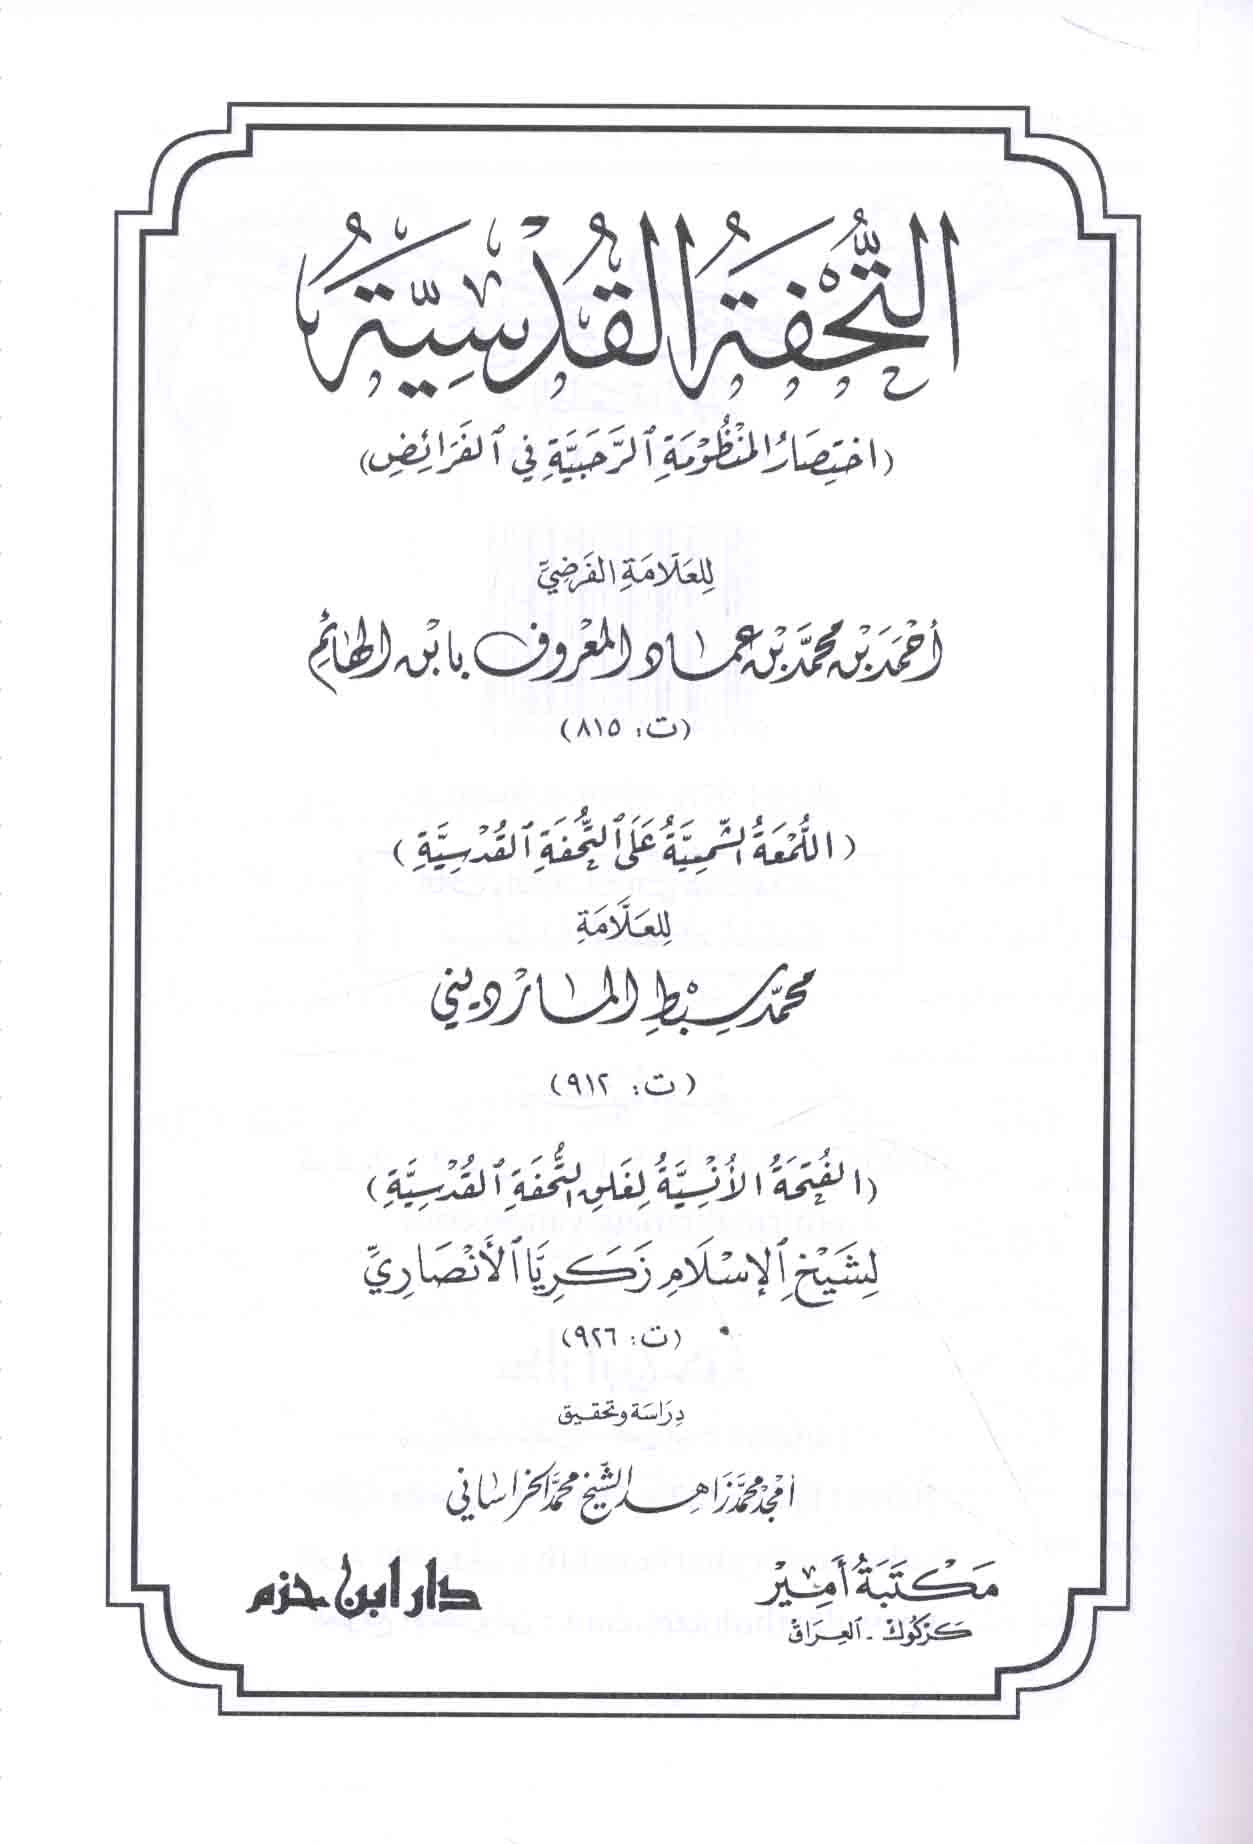 التُّحْفَةُ القُدْسِيَّةُ
(اخْتِصَارُ المَنْظُوْمَةِ الرَّحَبِيَّةِ فِي الفَرَائِضِ)
لِلعَلَّامَةِ الفَرَضِيِّ
أَحْمَدَ بْنِ مُحَمَّدِ بْنِ عِمَادٍ المَعْرُوفِ بِابْنِ الهَائِمِ
(ت: ٨١٥)
(اللُّمْعَةُ الشَّمْسِيَّةُ عَلَى التُّحْفَةِ القُدْسِيَّةِ)
لِلعَلَّامَةِ
مُحَمَّد سِبْطِ المَارْدِينِي
(ت: ٩١٢)
(الفُتْحَةُ الأُنْسِيَّةُ لِغَلَقِ التُّحْفَةِ القُدْسِيَّةِ)
لِشَيْخِ الإِسْلَامِ زَكَرِيَّا الأَنْصَارِيِّ
(ت: ٩٢٦)
دِرَاسَة وتحقيق
أمجد محمد زاهد الشيخ محمد الخراساني
مَكْتَبَةُ أَمِيْر
كَرْكُوك - العِرَاق
دار ابن حزم